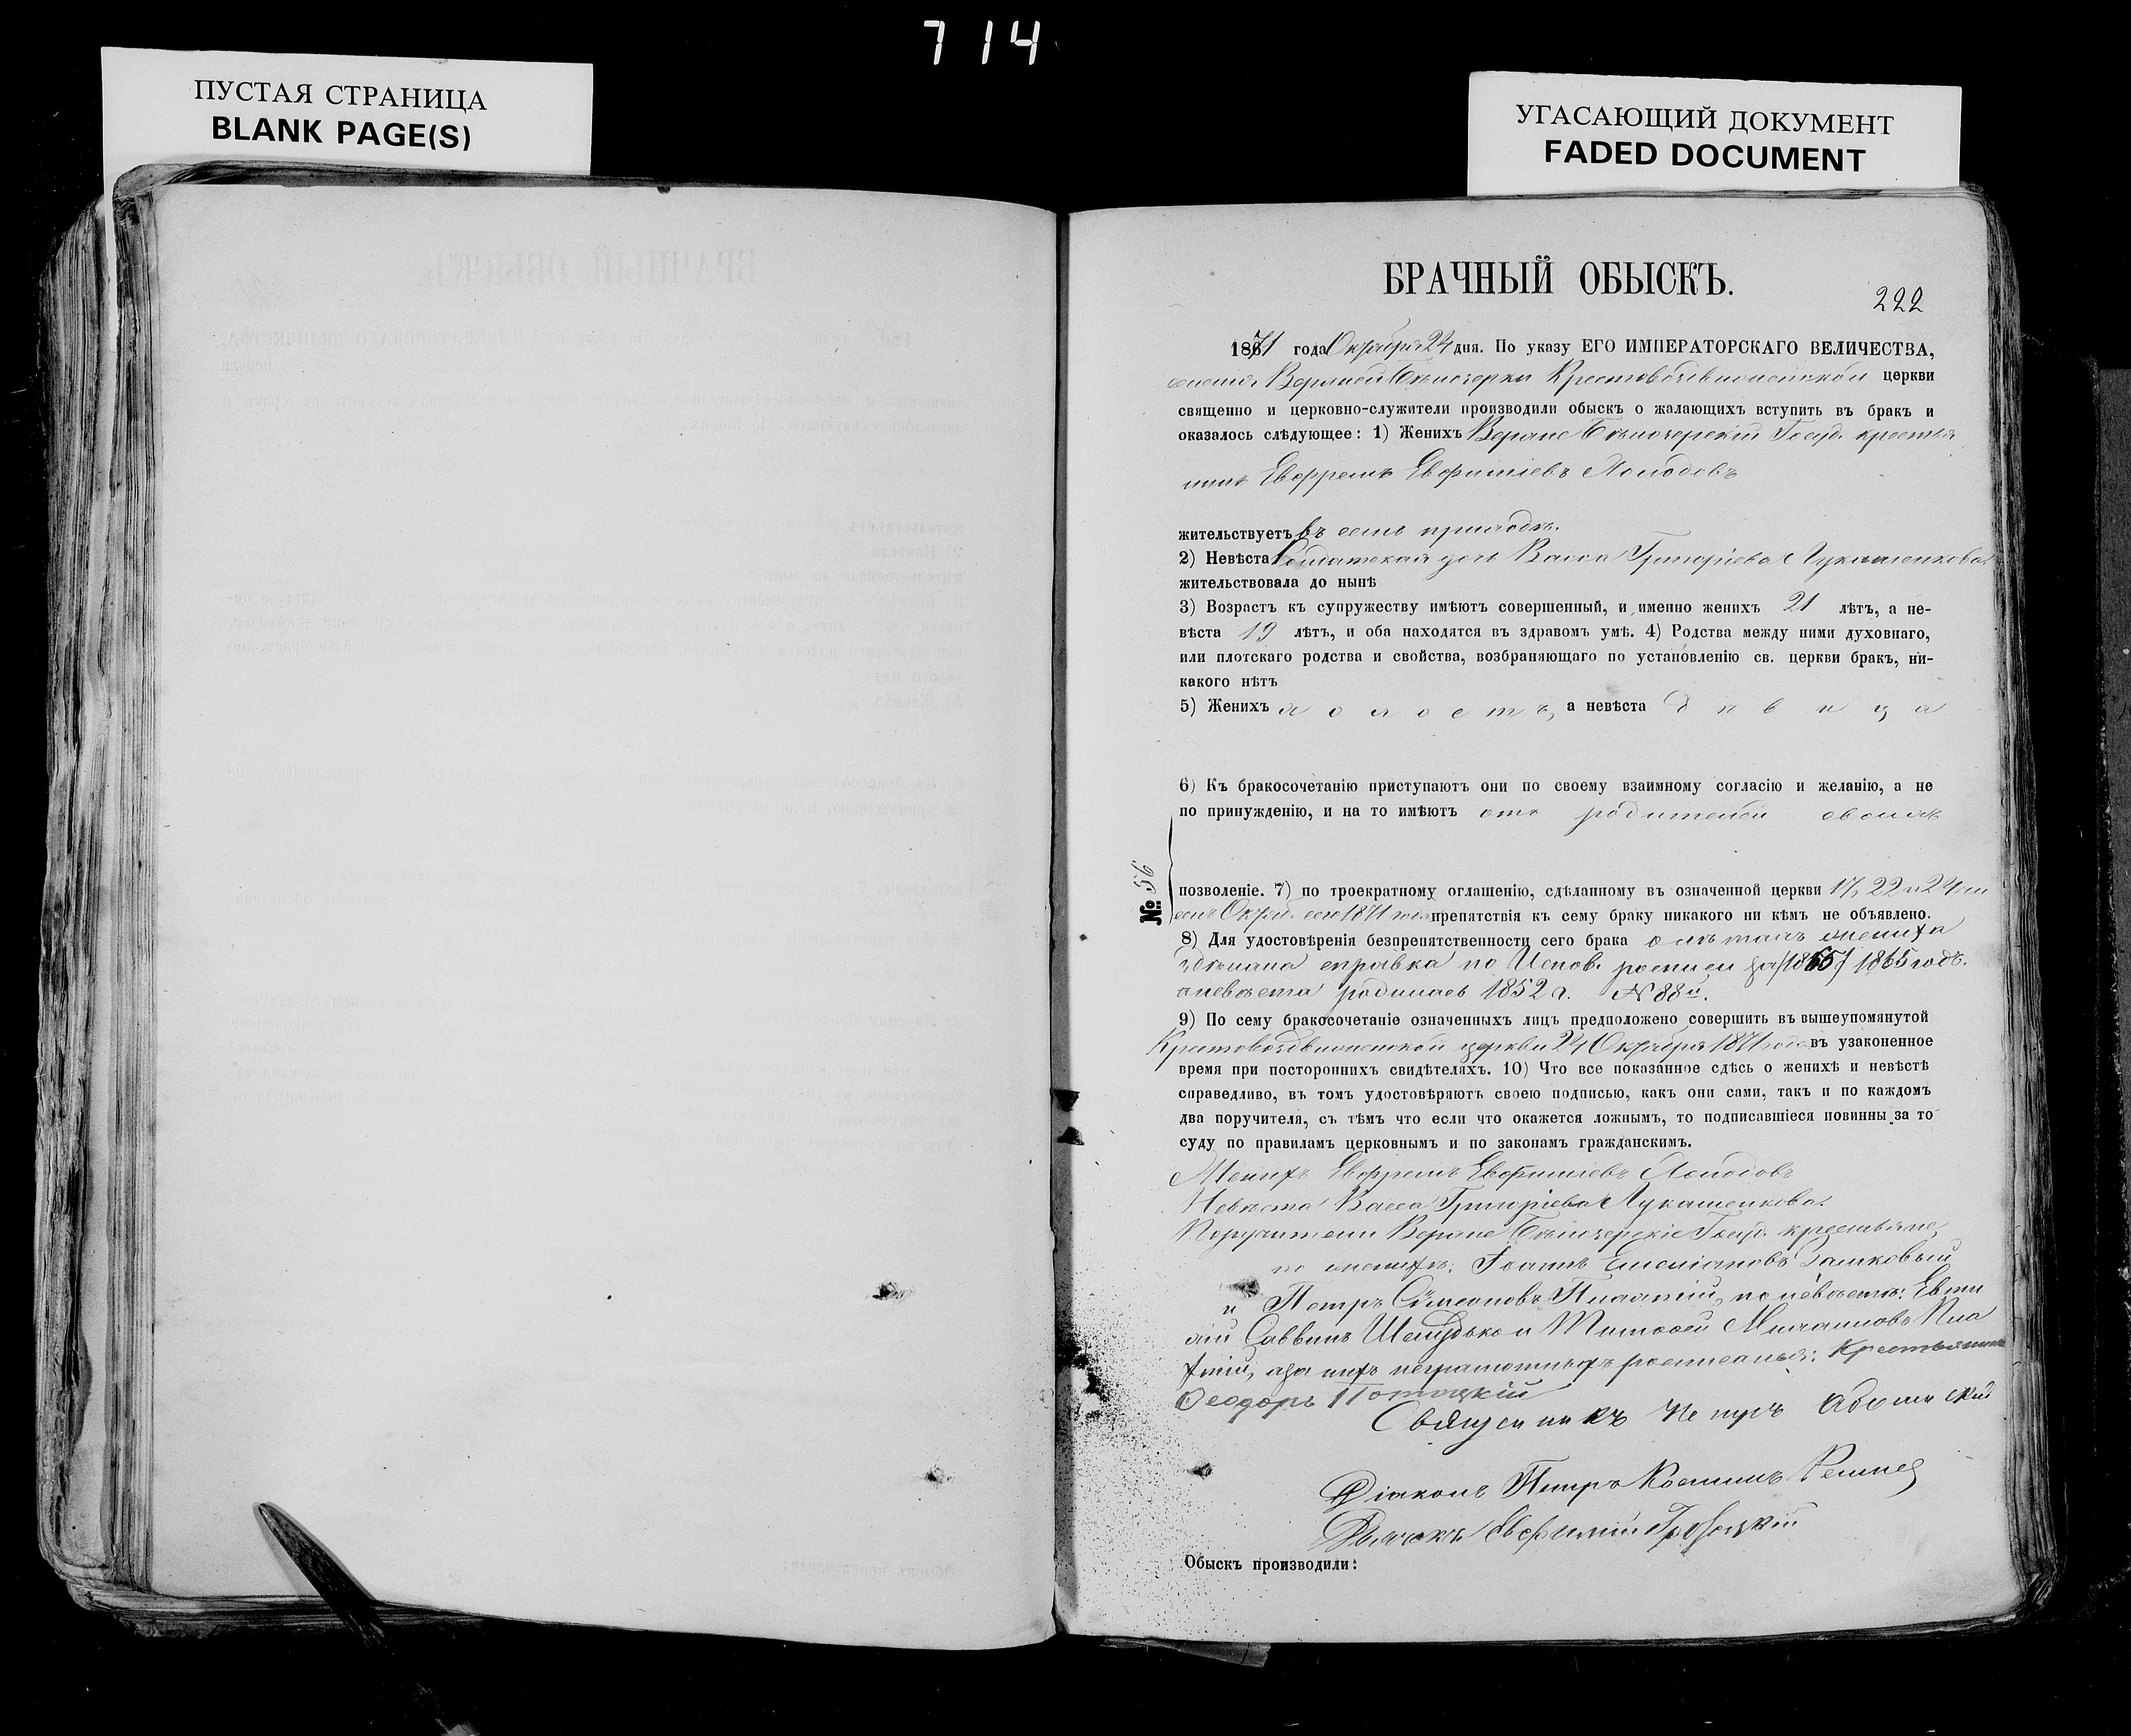 714
ПУСТАЯ СТРАНИЦА
BLANK PAGE(S)
УГАСАЮЩИЙ ДОКУМЕНТ
FADED DOCUMENT
БРАЧНЫЙ ОБЫСКЪ.
222
1871 года Октября 24 дня. По указу ЕГО ИМПЕРАТОРСКАГО ВЕЛИЧЕСТВА,
Крестовоздвиженской церкви
священно и церковно-служители производили обыскъ о жалающихъ вступить въ бракъ и
оказалось слѣдующее: 1) Женихъ Государ. крестья
нинъ Евфремъ Евфиміевъ
жительствуетъ въ семъ приходѣ.
2) Невѣста Солдатская дочь Васса Григоріева Лукашенкова
жительствовала до нынѣ
3) Возрастъ къ супружеству имѣютъ совершенный, и именно женихъ 21 лѣтъ, а не-
вѣста 19 лѣтъ, и оба находятся въ здравомъ умѣ. 4) Родства между ними духовнаго,
или плотскаго родства и свойства, возбраняющаго по установленію св. церкви бракъ, ни-
какого нѣтъ
5) Женихъ холостъ, а невѣста дѣвица
6) Къ бракосочетанію приступаютъ они по своему взаимному согласію и желанію, а не
по принужденію, и на то имѣютъ отъ родителей своихъ
№ 56
позволеніе. 7) по троекратному оглашенію, сдѣланному въ означенной церкви 17, 22 и 24 чи
селъ Октяб. сего 1871 года препятствія къ сему браку никакого ни кѣмъ не объявлено.
8) Для удостовѣренія безпрепятственности сего брака о лѣтахъ жениха
здѣлана справка по Испов. росписи за 1865 годъ.
а невѣста родилась 1852 г. № 88й.
9) По сему бракосочетаніе означенныхъ лицъ предположено совершить въ вышеупомянутой
Крестовоздвиженской церкви 24 Октября 1871 года въ узаконенное
время при постороннихъ свидѣтеляхъ. 10) Что все показанное сдѣсь о женихѣ и невѣстѣ
справедливо, въ томъ удостовѣряютъ своею подписью, какъ они сами, такъ и по каждомъ
два поручителя, съ тѣмъ что если что окажется ложнымъ, то подписавшіеся повинны за то
суду по правиламъ церковнымъ и по законамъ гражданскимъ.
Женихъ Евфремъ Евфиміевъ
Невѣста Васса Григоріева Лукашенкова.
Поручители крестьяне
по женихѣ: Іоаннъ Емеліановъ
и Петръ Сѵмеоновъ по невѣстѣ: Евти
хій Саввинъ и Тимофей
а за нихъ неграмотныхъ росписался: Крестьянинъ
Феодоръ Потоцкій
Священникъ
Діаконъ Петръ
Дьячокъ Евфимій
Обыскъ производили: